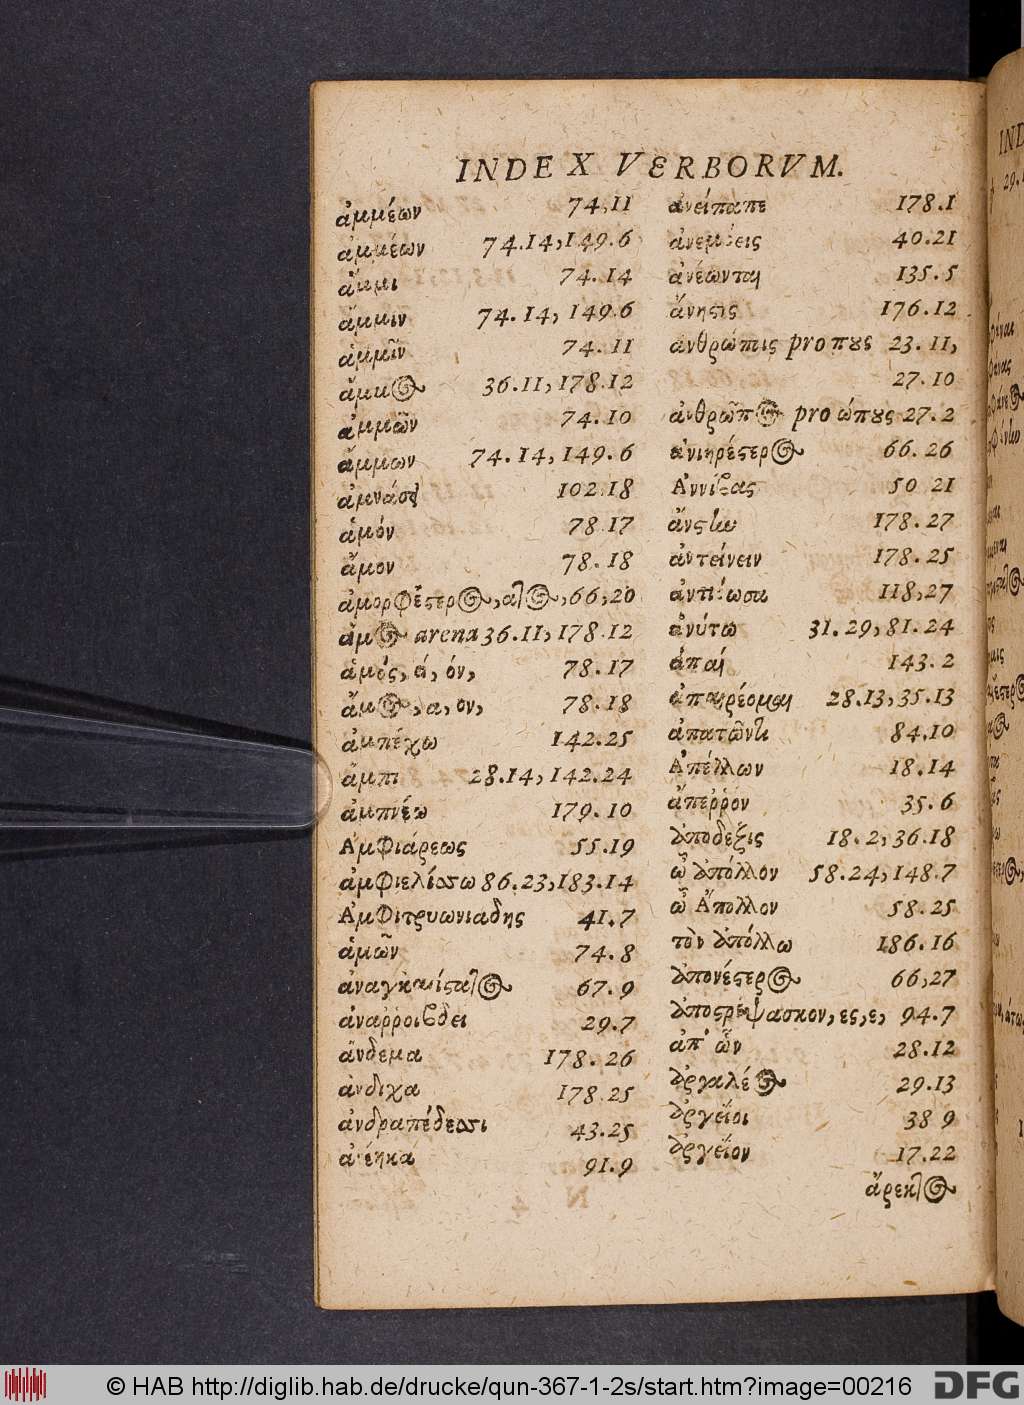 INDEX VERBORVM.
ἀμμέων 74,11
ἀμμέων 74.14,149.6
ἄμμι 74.14
ἄμμιν 74.14, 149.6
ἀμμῖν 74.11
ἄμμος 36.11,178.12
ἀμμῶν 74.10
ἄμμων 74.14,149.6
102.18
ἀμόν 78.17
ἄμον 78.18
ἀμορφέστερος, ατος,66,20
ἀμος arena 36.11,178.12
ἀμός, ά, όν, 78.17
ἄμος, α, ον, 78.18
ἀμπέχω 142.25
ἄμπι 28.14,142.24
ἀμπνέω 179.10
Ἀμφιάρεως 55.19
ἀμφιελίσσω 86.23,183.14
Ἀμφιτρυωνιάδης 41.7
ἀμῶν 74.8
ἀναγκαίστατος 67.9
ἀναῤῥοιβδεῖ 29.7
ἄνδεμα 178.26
ἄνδιχα 178.25
ἀνδραπέδεσσι 43.25
ἀνέηκα 91.9
ἀνείπαπε 178.1
40.21
ἀνέωνται 135.5
ἄνησις 176.12
ἀνθρώποις pro πους 23.11,
27.10
ἀνθρῶπος pro ώπους 27.2
ἀνιηρέστερος 66.26
Ἀννίβας 50 21
ἄνστω 178.27
ἀντείνειν 178.25
118,27
ἀνύτω 31.29,81.24
ἀπαί 143.2
ἀπαιρέομαι 28.13,35.13
ἀπατῶντι 84,10
Ἀπέλλων 18.14
ἄπεῤῥον 35.6
ἀπόδεξις 18.2,36.18
ὦ ἀπόλλον 58.24,148.7
ὦ Ἄπολλον 58.25
τὸν ἀπόλλω 186.16
ἀπονέστερος 66,27
ἀποστρέψασκον, ες, ε, 94.7
ἀπ' ὧν 28.12
ἀργαλέος 29.13
ἀργεῖοι 38 9
ἀργεῖον 17.22
ἄρεκτος
© HAB http://diglib.hab.de/drucke/qun-367-1-2s/start.htm?image=00216
DFG